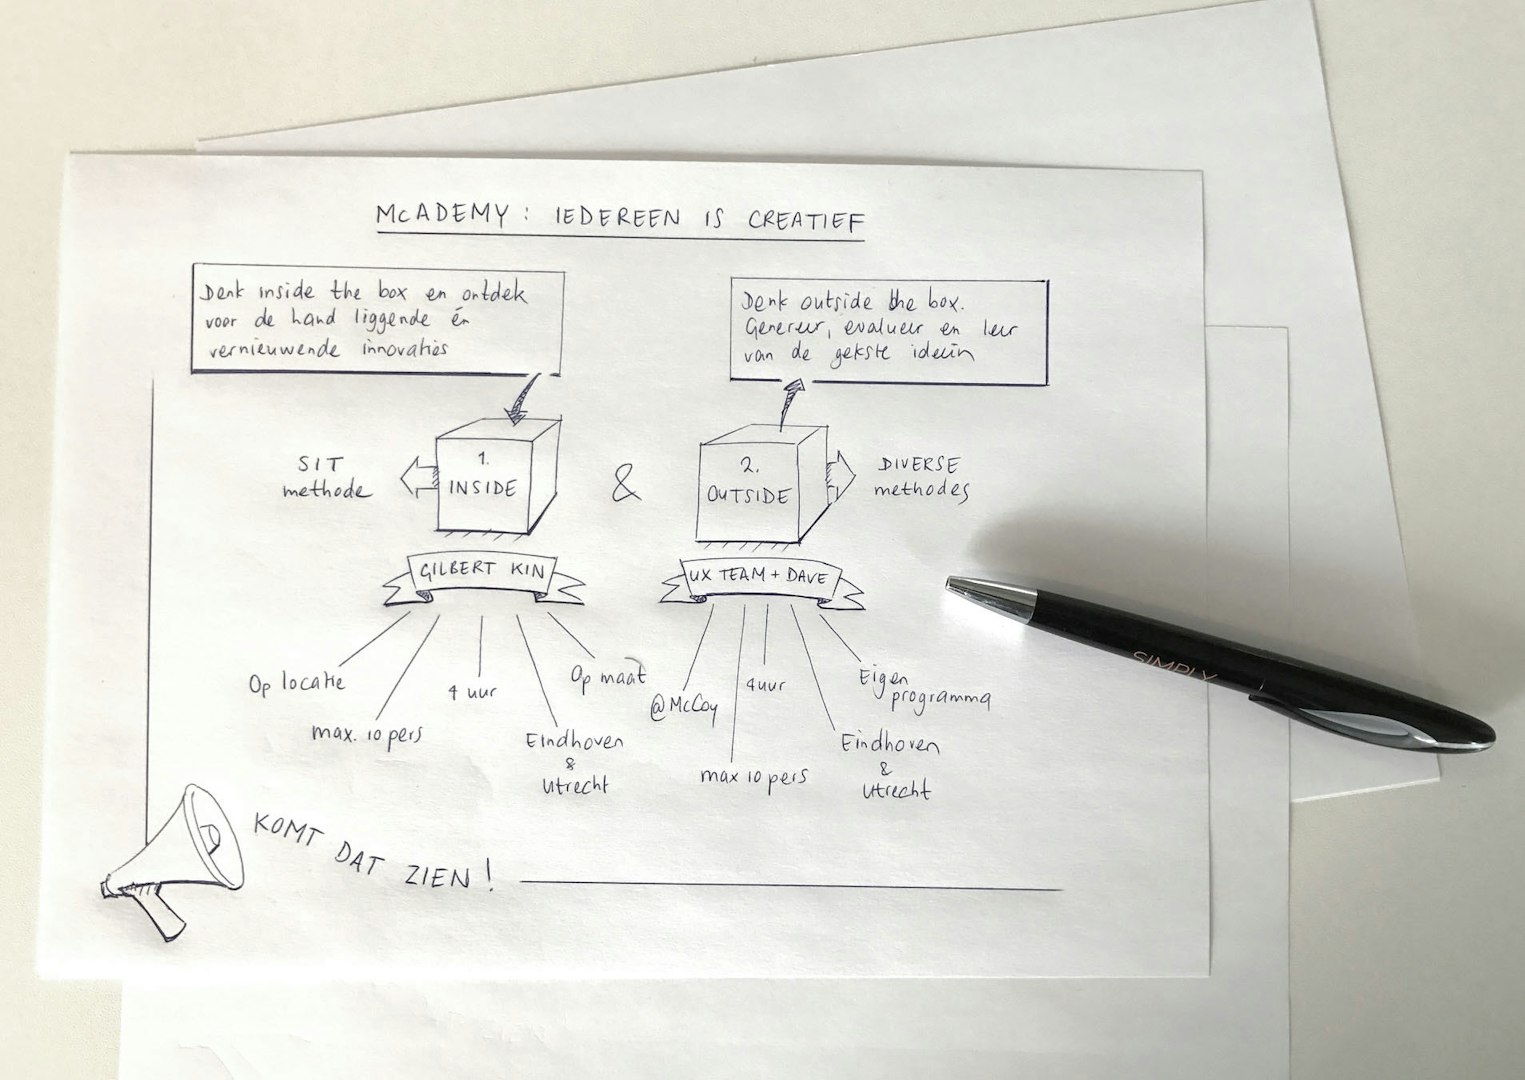 McADEMY: IEDEREEN IS CREATIEF
Denk inside the box en ontdek
voor de hand liggende én
vernieuwende innovaties
Denk outside the box.
Genereer, evalueer en leer
van de gekste ideeën
SIT
methode
1.
INSIDE
&
2.
OUTSIDE
DIVERSE
methodes
GILBERT KIN
UX TEAM + DAVE
Op locatie
max. 10 pers
4 uur
Eindhoven
&
Utrecht
Op maat
@McCoy
max 10 pers
4 uur
Eindhoven
&
Utrecht
Eigen
programma
KOMT DAT ZIEN!
SIMPLY